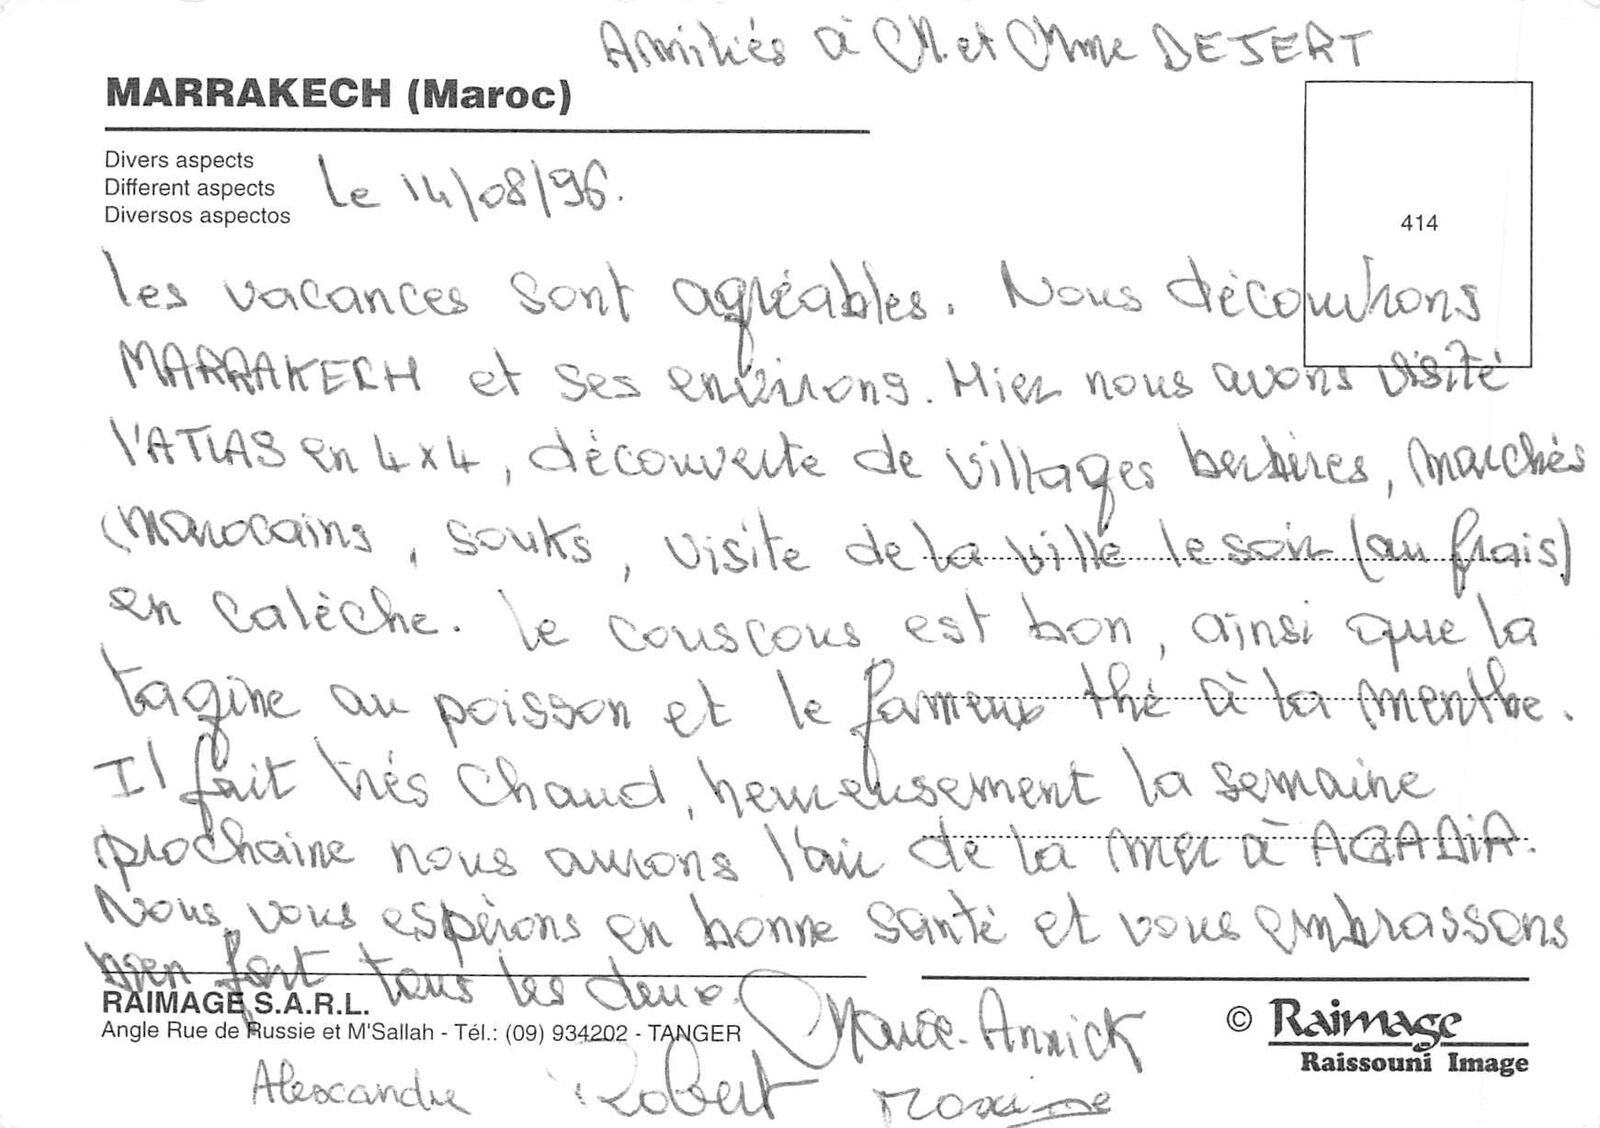 Amitiés à M. et Mme DEJERT
MARRAKECH (Maroc)
Divers aspects
Different aspects
Diversos aspectos
Le 14/08/96.
414
Les vacances sont agréables. Nous découvrons
MARRAKECH et ses environs. Hier nous avons visité
l'ATLAS en 4x4, découverte de villages berbères, marchés
marocains, souks, visite de la ville le soir (au frais)
en calèche. Le couscous est bon, ainsi que la
tagine au poisson et le fameux thé à la menthe.
Il fait très chaud, heureusement la semaine
prochaine nous aurons l'air de la mer à AGADIR.
Nous vous espérons en bonne santé et vous embrassons
bien fort tous les deux.
RAIMAGE S.A.R.L.
Angle Rue de Russie et M'Sallah - Tél.: (09) 934202 - TANGER
Marie-Annick
© Raimage
Raissouni Image
Alexandre Robert Maxime